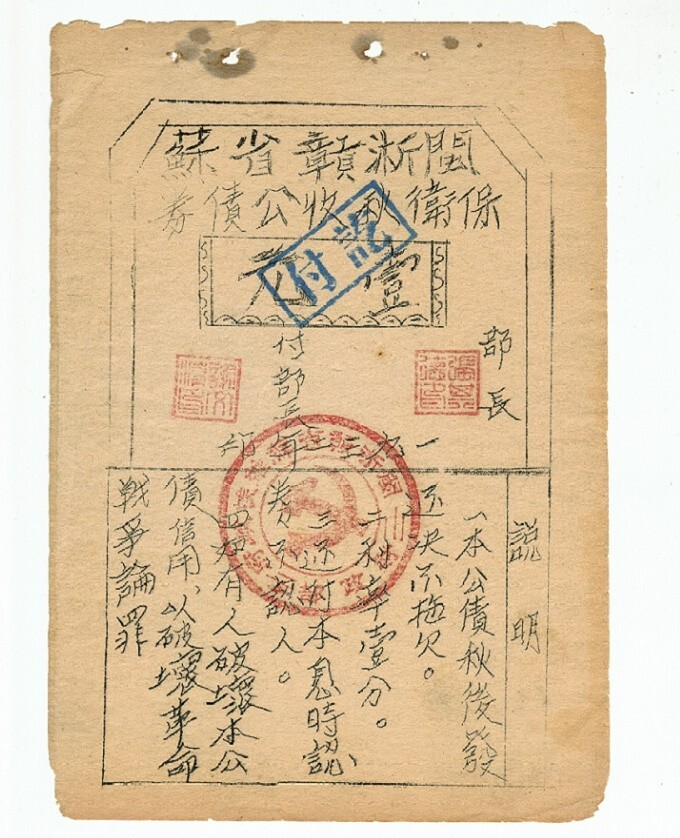 閩浙贛省蘇
保衛秋收公債券
壹元
訖付
部長
付部長
一九三三年
印
説明
一本公債秋後發
還決不拖欠。
二利率壹分。
三還付本息時認
券不認人。
四如有人破壞本公
債信用、以破壞革命
戰爭論罪